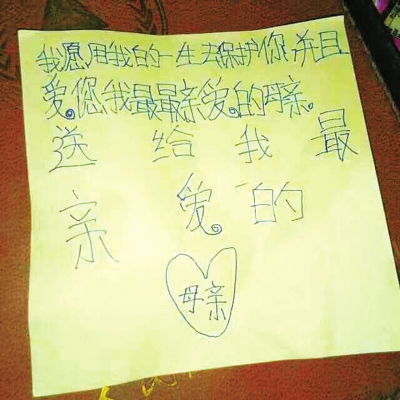 我愿用我的一生去保护你,并且
爱您,我最最亲爱的母亲。
送给我最
亲爱的
母亲